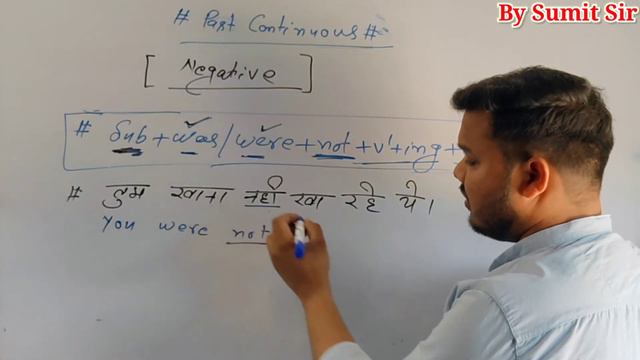 By Sumit Sir
# Past Continuous #
[ Negative ]
# Sub + was / were + not + v¹ + ing +
# तुम खाना नहीं खा रहे थे।
You were not